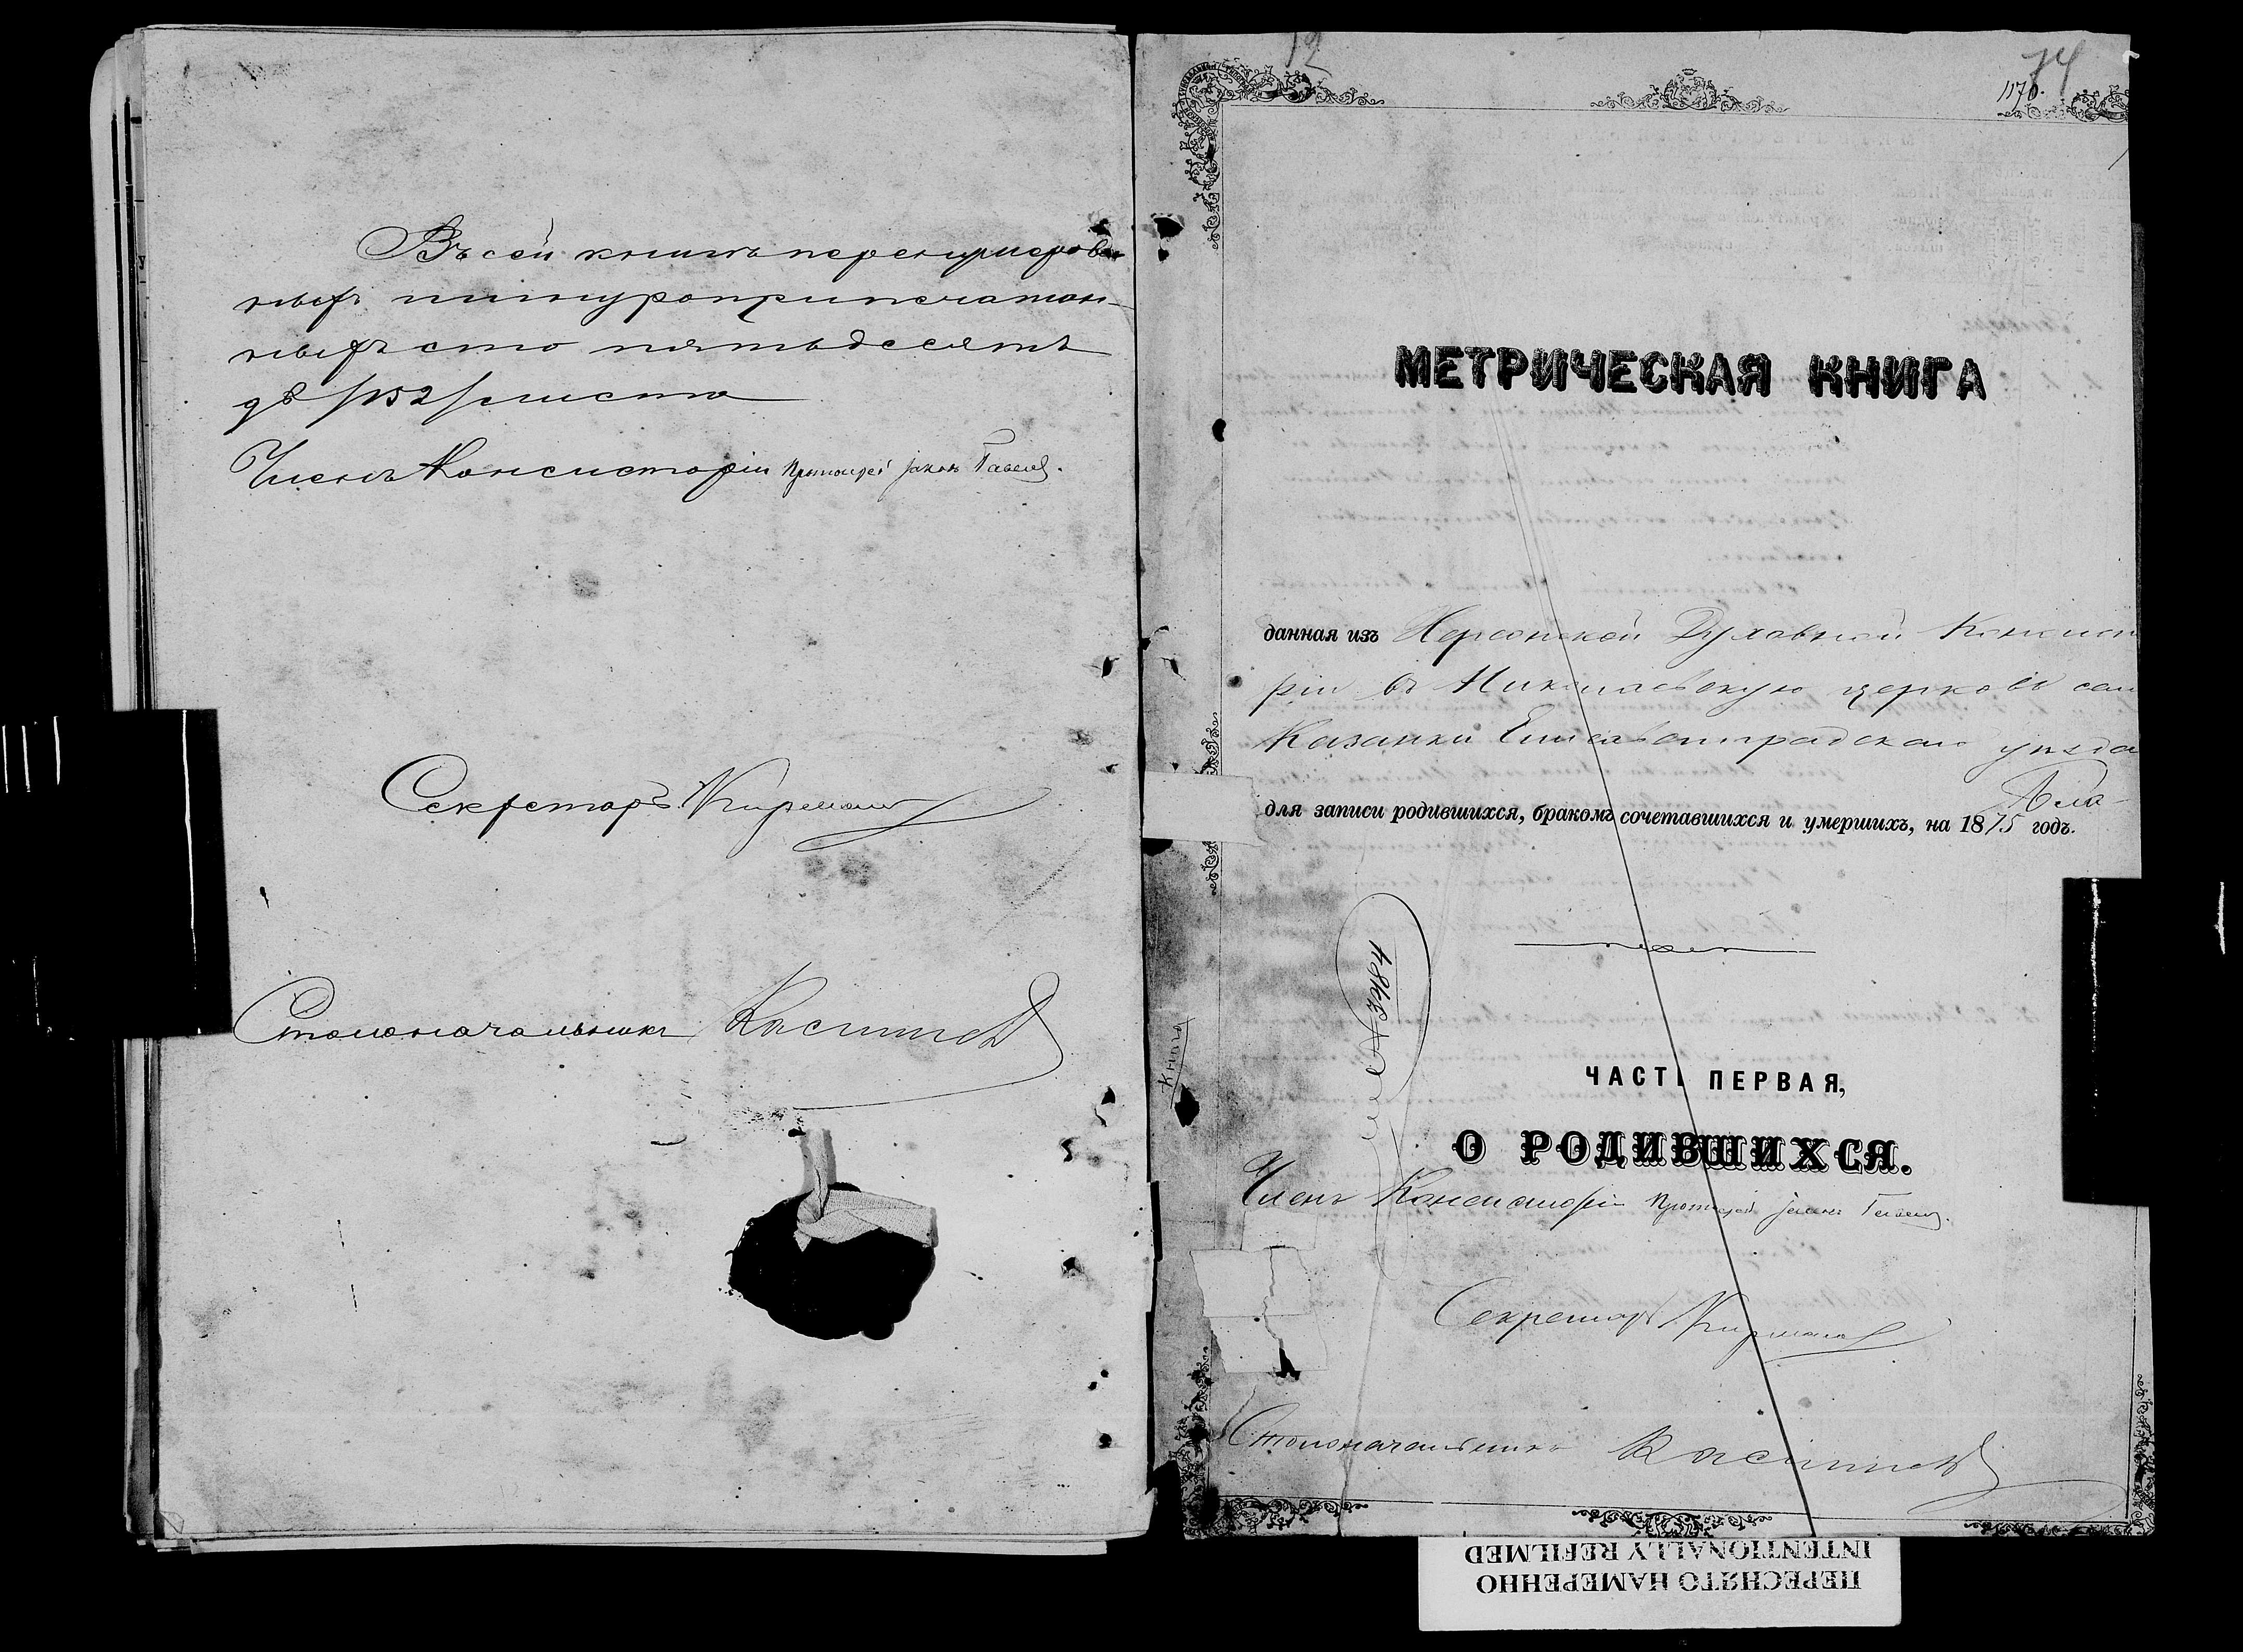 Въ сей книгѣ перенумерован-
ныхъ шнуроприпечатан-
ныхъ сто пятьдесятъ
два /152/ листа
Членъ Консисторіи Протоіерей
Секретарь
Столоначальникъ
12
74
1176.
МЕТРИЧЕСКАЯ КНИГА
данная изъ Херсонской Духовной Консисто
ріи въ Николаевскую церковь села
Казанки Елисаветградскаго уѣзда
для записи родившихся, бракомъ сочетавшихся и умершихъ, на 1875 годъ.
Книга
ЧАСТЬ ПЕРВАЯ,
О РОДИВШИХСЯ.
Членъ Консисторіи Протоіерей
Секретарь
Столоначальникъ
ПЕРЕСНЯТО НАМЕРЕННО
INTENTIONALLY REFILMED